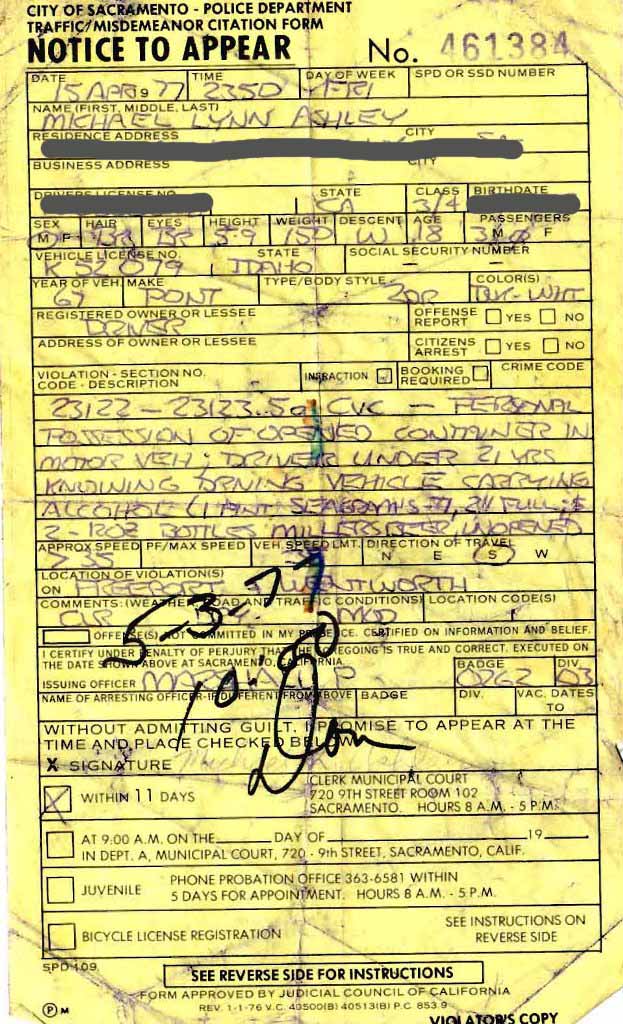 CITY OF SACRAMENTO - POLICE DEPARTMENT
TRAFFIC/MISDEMEANOR CITATION FORM
NOTICE TO APPEAR No. 461384
DATE TIME DAY OF WEEK SPD OR SSD NUMBER
15 APR 1977 2350 FRI
NAME (FIRST, MIDDLE, LAST)
MICHAEL LYNN ASHLEY
RESIDENCE ADDRESS CITY
BUSINESS ADDRESS CITY
DRIVERS LICENSE NO. STATE CLASS BIRTHDATE
CA 3/4
SEX HAIR EYES HEIGHT WEIGHT DESCENT AGE PASSENGERS
M F BR BR 5-9 150 W 18 3 M F
VEHICLE LICENSE NO. STATE SOCIAL SECURITY NUMBER
K 52 079 IDAHO -
YEAR OF VEH. MAKE TYPE/BODY STYLE COLOR(S)
67 PONT 2DR WHT
REGISTERED OWNER OR LESSEE OFFENSE REPORT YES NO
DRIVER
ADDRESS OF OWNER OR LESSEE CITIZENS ARREST YES NO
VIOLATION - SECTION NO. CODE - DESCRIPTION INFRACTION BOOKING REQUIRED CRIME CODE
23122 - 23123.5a CVC - PERSONAL
POSSESSION OF OPENED CONTAINER IN
MOTOR VEH; DRIVER UNDER 21 YRS
KNOWING DRIVING VEHICLE CARRYING
ALCOHOL (1 PINT SEAGRAMS-7, FULL; &
2-12OZ BOTTLES MILLERS BEER, UNOPENED
APPROX SPEED PF/MAX SPEED VEH. SPEED LMT. DIRECTION OF TRAVEL
35 N E S W
LOCATION OF VIOLATION(S)
ON FREEPORT WENTWORTH
COMMENTS: (WEATHER, ROAD AND TRAFFIC CONDITIONS) LOCATION CODE(S)
CLR MOD
OFFENSE(S) NOT COMMITTED IN MY PRESENCE. CERTIFIED ON INFORMATION AND BELIEF.
I CERTIFY UNDER PENALTY OF PERJURY THAT THE FOREGOING IS TRUE AND CORRECT. EXECUTED ON
THE DATE SHOWN ABOVE AT SACRAMENTO, CALIFORNIA.
BADGE DIV.
ISSUING OFFICER P 0262 03
NAME OF ARRESTING OFFICER-IF DIFFERENT FROM ABOVE BADGE DIV. VAC. DATES TO
5-3-77
10:00
Don
WITHOUT ADMITTING GUILT, I PROMISE TO APPEAR AT THE
TIME AND PLACE CHECKED BELOW
X SIGNATURE
X WITHIN 11 DAYS CLERK MUNICIPAL COURT
720 9TH STREET ROOM 102
SACRAMENTO. HOURS 8 A.M. - 5 P.M.
AT 9:00 A.M. ON THE DAY OF 19
IN DEPT. A, MUNICIPAL COURT, 720 - 9th STREET, SACRAMENTO, CALIF.
JUVENILE PHONE PROBATION OFFICE 363-6581 WITHIN
5 DAYS FOR APPOINTMENT. HOURS 8 A.M. - 5 P.M.
BICYCLE LICENSE REGISTRATION SEE INSTRUCTIONS ON
REVERSE SIDE
SPD 109
SEE REVERSE SIDE FOR INSTRUCTIONS
FORM APPROVED BY JUDICIAL COUNCIL OF CALIFORNIA
P M REV. 1-1-76 V.C. 40500(B) 40513(B) P.C. 853.9
VIOLATOR'S COPY